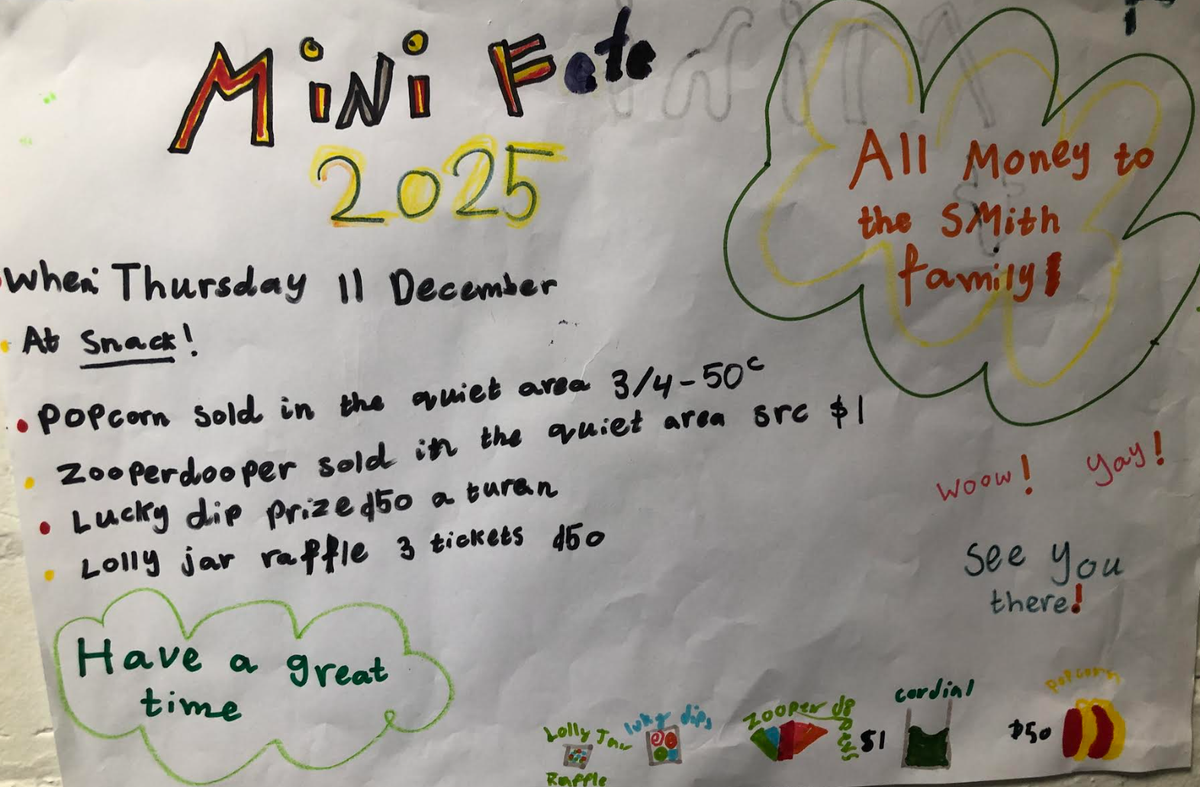 MiNi Fete
2025
All Money to
the SMith
family!
When: Thursday 11 December
At Snack!
POPcorn sold in the quiet area 3/4-50c
Zooperdooper sold in the quiet area src $1
Lucky dip prize $50 a turan
Lolly jar raffle 3 tickets $50
woow! yay!
See you
there!
Have a great
time
Lolly Jar
Raffle
luky dips
zooper
$1
cordial
$50
popcorn